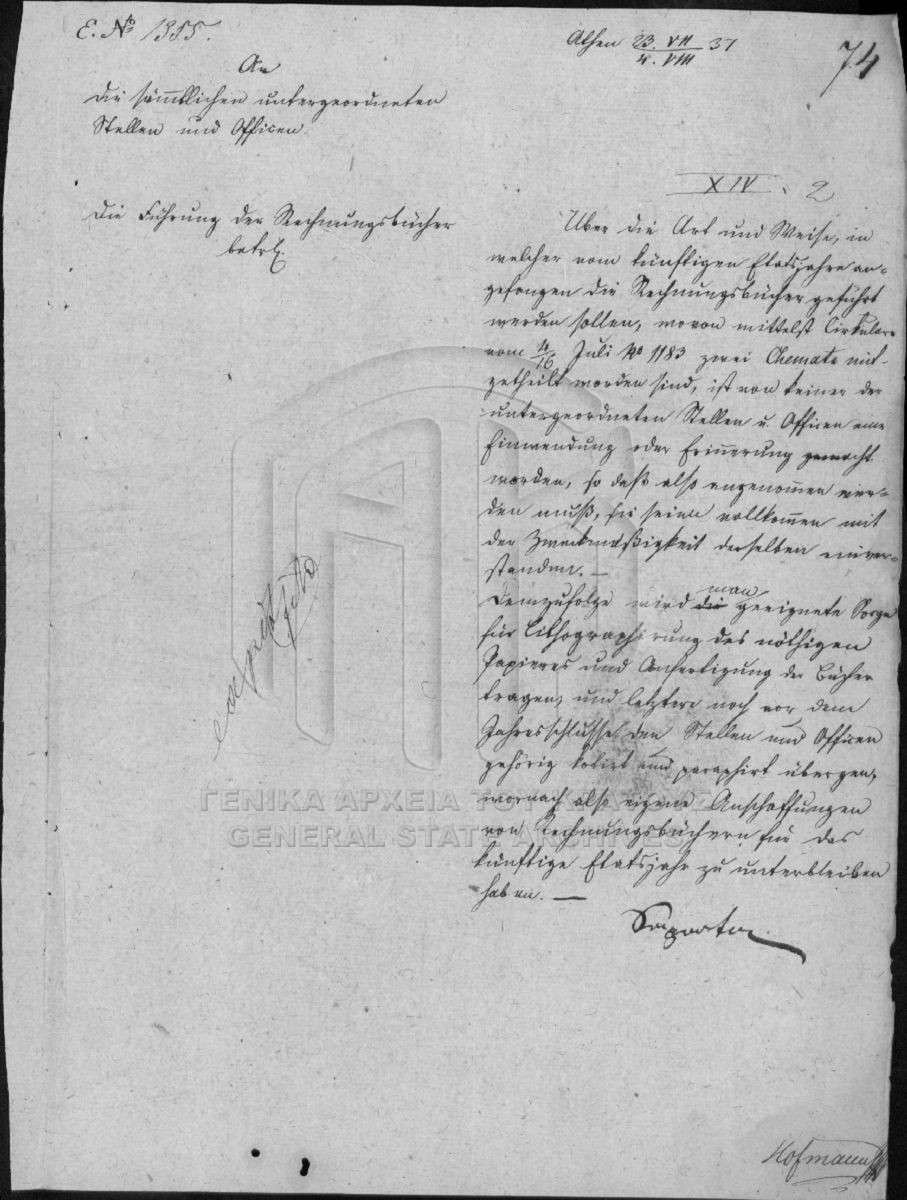 E. No 1385.
Athen 23. VII / 4. VIII 37
74
An
die sämmtlichen untergeordneten
Stellen und Officen.
XIV. 2
Die Führung der Rechnungsbücher
betrf.
Über die Art und Weise, in
welcher vom künftigen Etatsjahre an-
gefangen die Rechnungsbücher geführt
werden sollen, wovon mittelst Cirkulare
vom 4/16 Juli No 1183 zwei Chemata mit-
getheilt worden sind, ist von keiner der
untergeordneten Stellen u. Officen eine
Einwendung oder Erinnerung gemacht
worden, so daß also angenommen wer-
den muß, sie seien vollkommen mit
der Zweckmäßigkeit derselben einver-
standen. —
man
Demzufolge wird die geeignete Sorge
für Lithographirung des nöthigen
Papieres und Anfertigung der Bücher
tragen, und letztere noch vor dem
Jahresschlusse den Stellen und Officen
gehörig kotirt und paraphirt übergen,
wornach also eigene Anschaffungen
von Rechnungsbüchern für das
künftige Etatsjahr zu unterbleiben
haben. —
Hofmann
ΓΕΝΙΚΑ ΑΡΧΕΙΑ ΤΟΥ ΚΡΑΤΟΥΣ
GENERAL STATE ARCHIVES